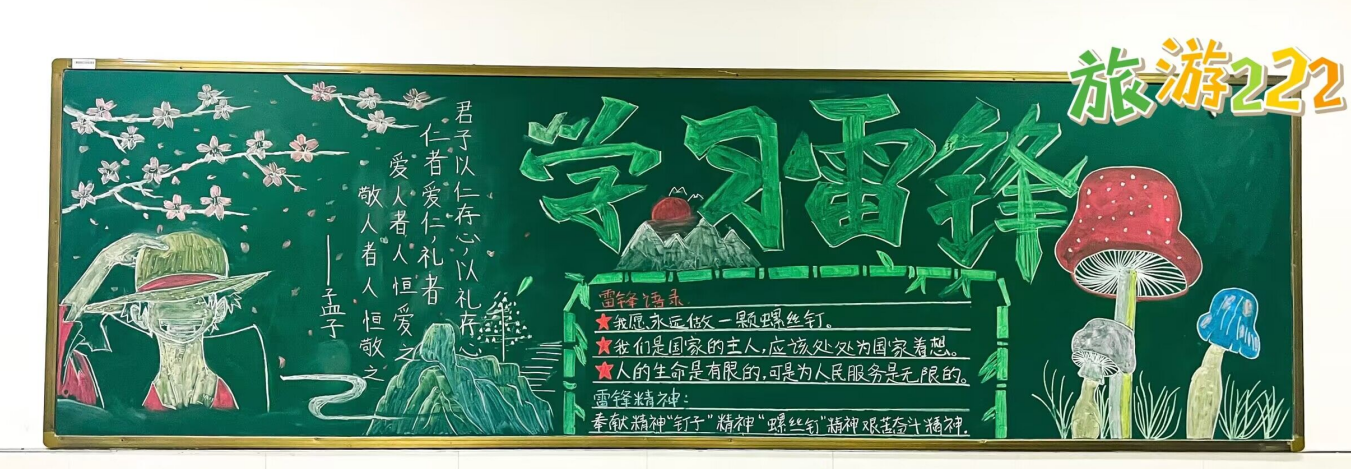 旅游222
学习雷锋
君子以仁存心,以礼存心
仁者爱仁,礼者
爱人者人恒爱之
敬人者人恒敬之
——孟子
雷锋语录:
★我愿永远做一颗螺丝钉。
★我们是国家的主人,应该处处为国家着想。
★人的生命是有限的,可是为人民服务是无限的。
雷锋精神:
奉献精神"钉子"精神"螺丝钉"精神艰苦奋斗精神.